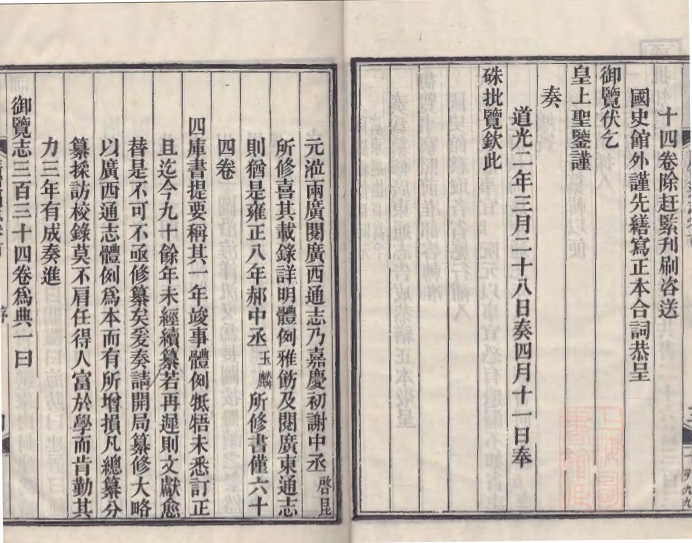 十四卷除赶緊刋刷咨送
國史館外謹先繕寫正本合詞恭呈
御覽伏乞
皇上聖鑒謹
奏
道光二年三月二十八日奏四月十一日奉
硃批覽欽此
元涖兩廣閱廣西通志乃嘉慶初謝中丞啓昆
所修喜其載錄詳明體例雅飭及閱廣東通志
則猶是雍正八年郝中丞玉麟所修書僅六十
四卷
四庫書提要稱其一年竣事體例牴牾未悉訂正
且迄今九十餘年未經續纂若再遲則文獻愈
替是不可不亟修纂矣爰奏請開局纂修大略
以廣西通志體例爲本而有所增損凡總纂分
纂採訪校錄莫不肩任得人富於學而肯勤其
力三年有成奏進
御覽志三百三十四卷爲典一曰
序